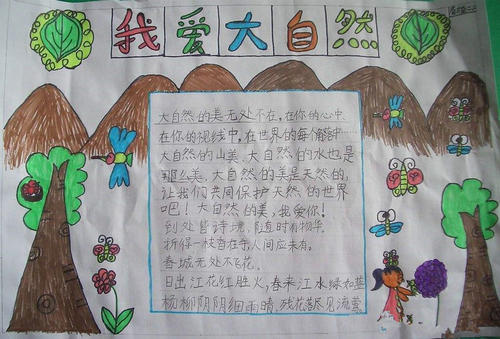 我爱大自然
大自然的美无处不在,在你的心中、
在你的视线中,在世界的每个角落中……
大自然的山美、大自然的水也是
那么美,大自然的美是天然的,
让我们共同保护天然的世界
吧!大自然的美,我爱你!
到处皆诗境,随时有物华。
折得一枝香在手,人间应未有。
春城无处不飞花。
日出江花红胜火,春来江水绿如蓝
杨柳阴阴细雨晴,残花落尽见流莺